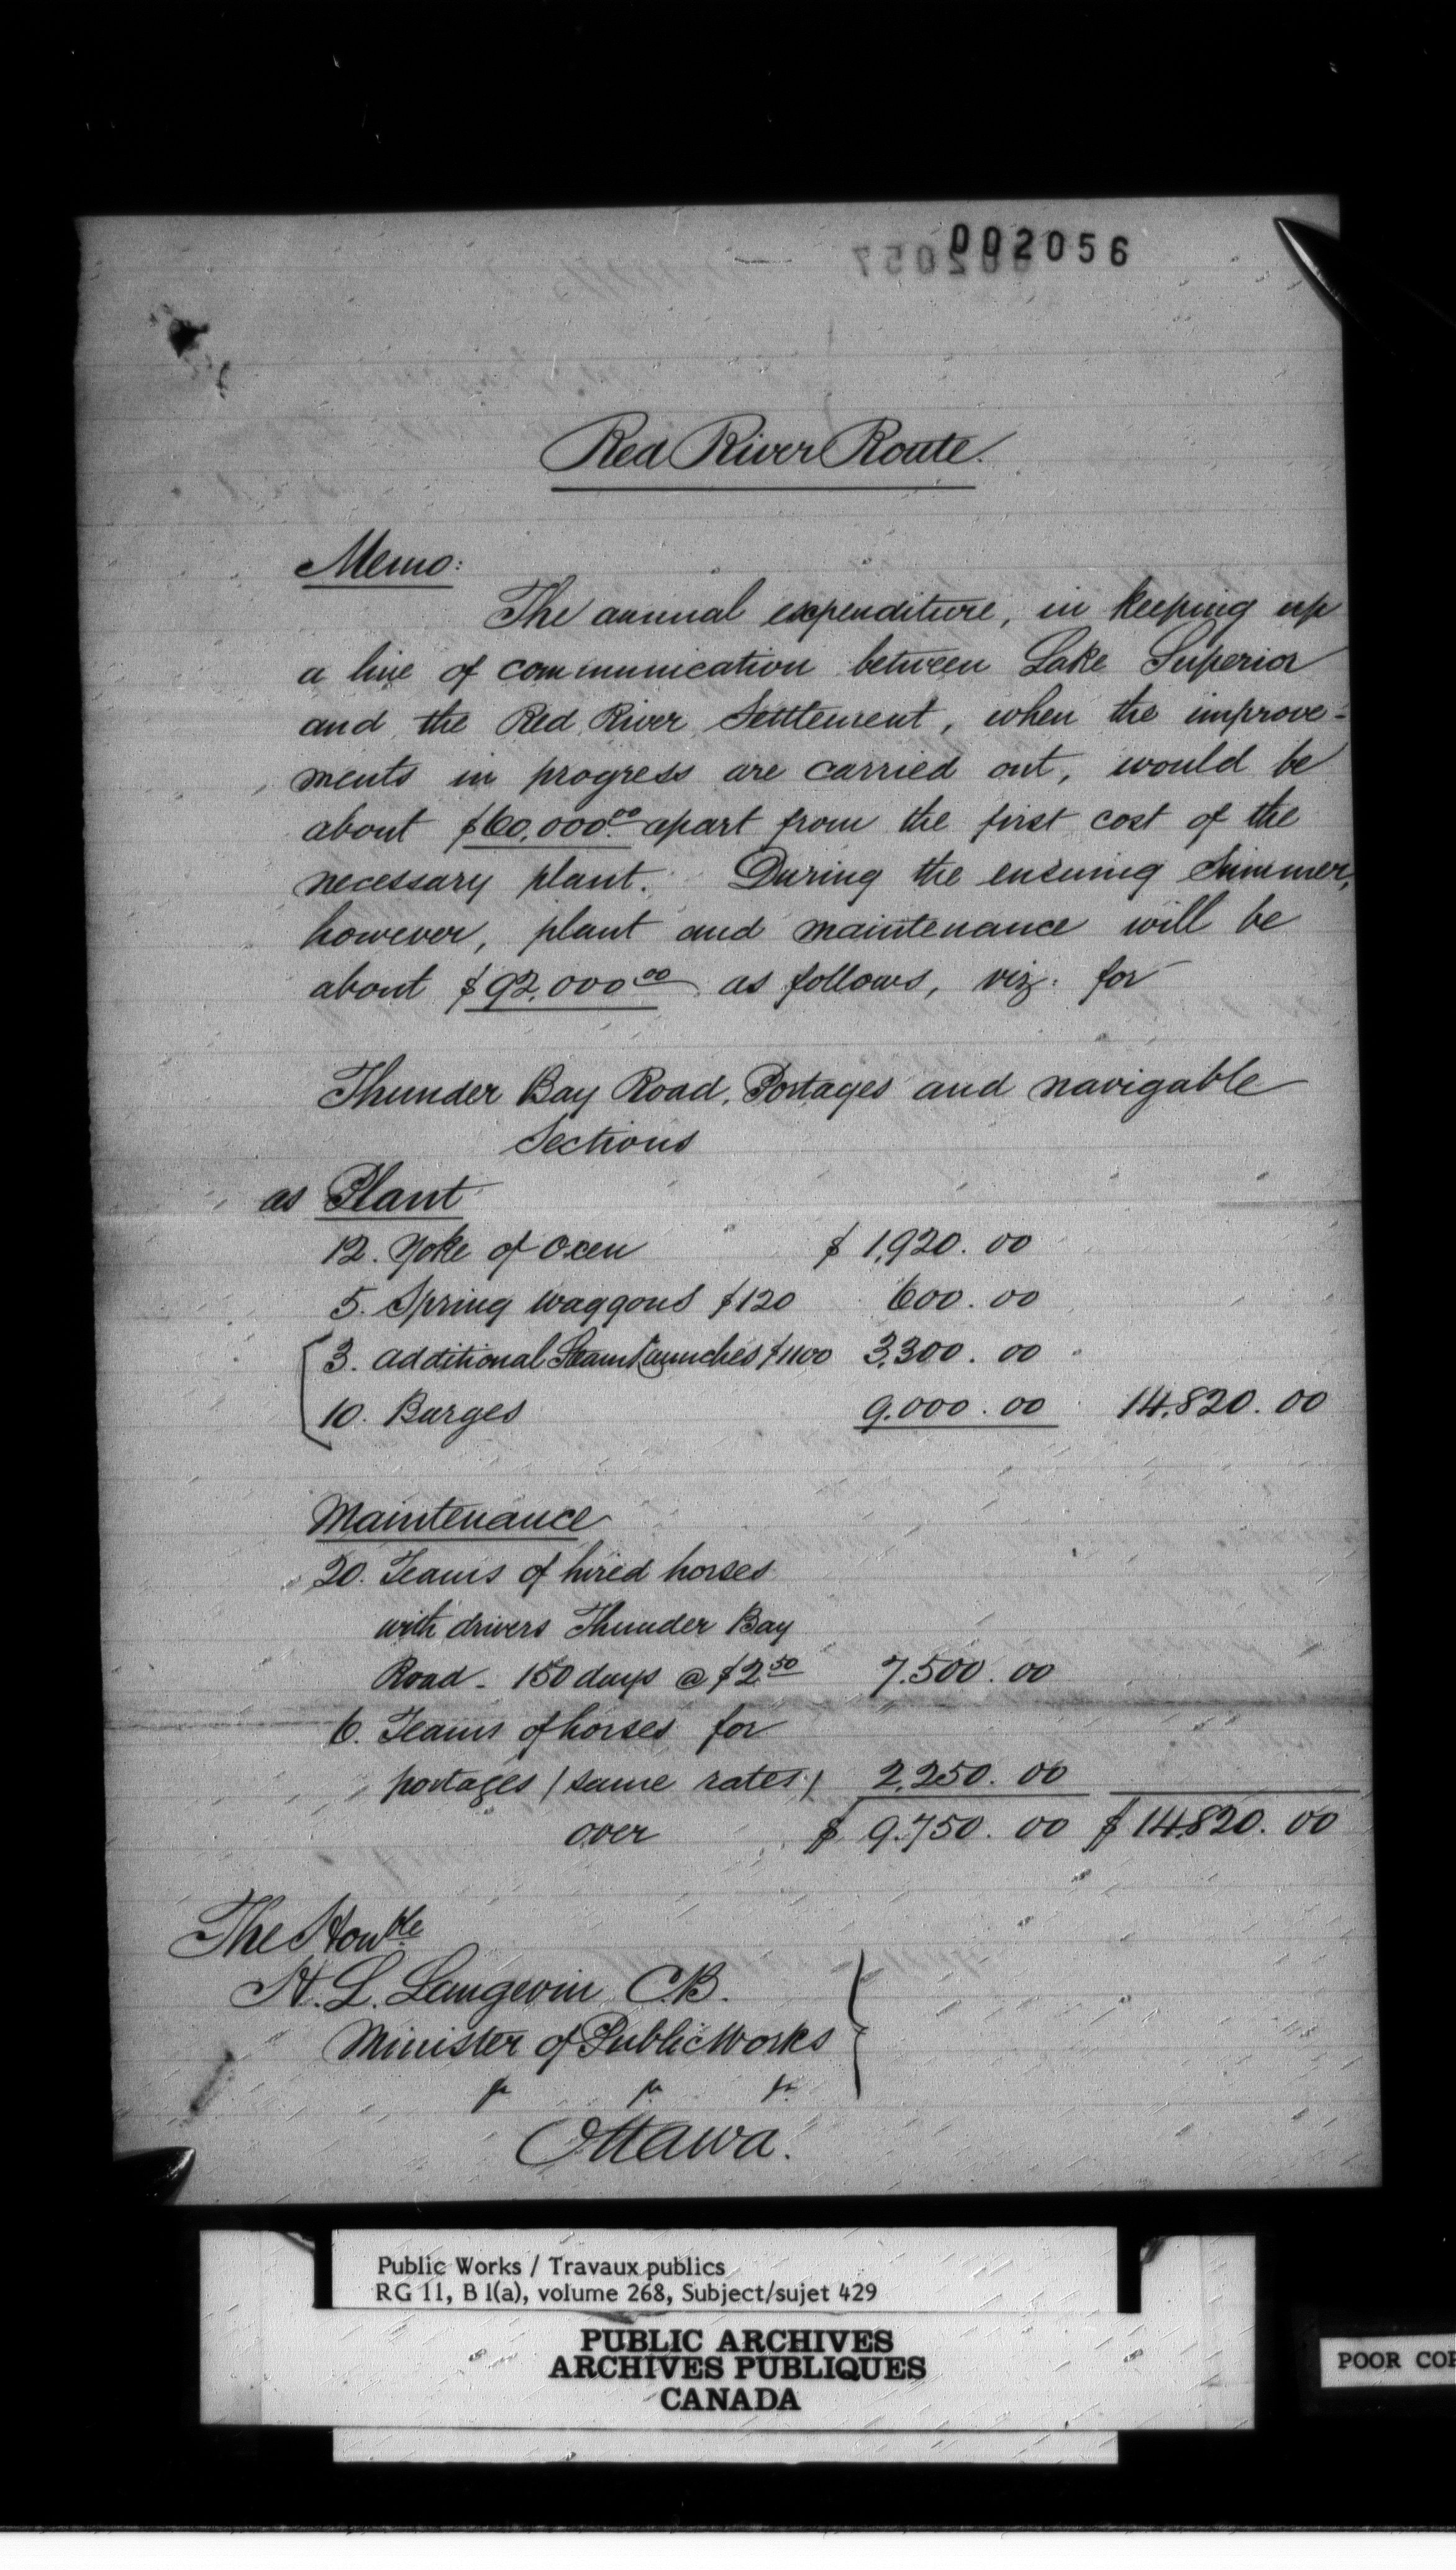 002056
Red River Route.
Memo:
The annual expenditure, in keeping up
a line of communication between Lake Superior
and the Red River Settlement, when the improve-
ments in progress are carried out, would be
about $60,000.00 apart from the first cost of the
necessary plant. During the ensuing Summer,
however, plant and maintenance will be
about $92,000 00 as follows, viz: for
Thunder Bay Road, Portages and navigable
Sections
as Plant
12. Yoke of Oxen $ 1,920. 00
5. Spring waggons $120 600. 00
3. additional Steam Launches $1100 3,300. 00
10. Barges 9.000. 00 14,820. 00
Maintenance
20. Teams of hired horses
with drivers Thunder Bay
Road - 150 days @ $2 50 7.500. 00
6. Teams of horses for
portages (same rates) 2,250. 00
over $ 9.750. 00 $ 14,820. 00
The Honble
H. L. Langevin C.B.
Minister of Public Works
Ottawa.
Public Works / Travaux publics
RG 11, B 1(a), volume 268, Subject/sujet 429
PUBLIC ARCHIVES
ARCHIVES PUBLIQUES
CANADA
POOR COP